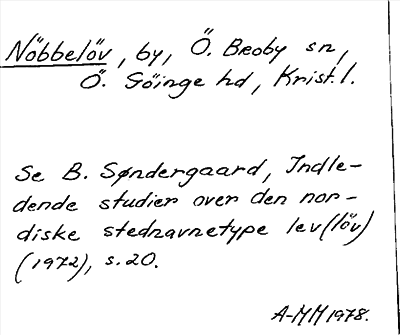 Nöbbelöv, by, Ö. Broby sn,
Ö. Göinge hd, Krist. l.
Se B. Søndergaard, Indle-
dende studier over den nor-
diske stednavnetype lev (löv)
(1972), s. 20.
A-MM 1978.